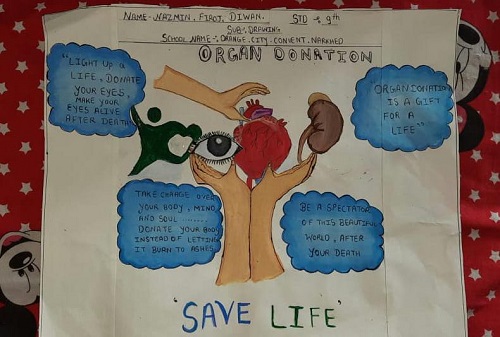 NAME:- NAZMIN. FIROJ. DIWAN.
STD → 9th
SUB:- DRAWING
SCHOOL NAME:- ORANGE. CITY. CONVENT. NARKHED
ORGAN DONATION
"LIGHT UP A
LIFE, DONATE
YOUR EYES,
MAKE YOUR
EYES ALIVE
AFTER DEATH
ORGAN DONATION
IS A GIFT
FOR A
LIFE"
TAKE CHARGE OVER
YOUR BODY, MIND
AND SOUL ........
DONATE YOUR BODY
INSTEAD OF LETTING
IT BURN TO ASHES
BE A SPECTATOR
OF THIS BEAUTIFUL
WORLD, AFTER
YOUR DEATH
'SAVE LIFE'